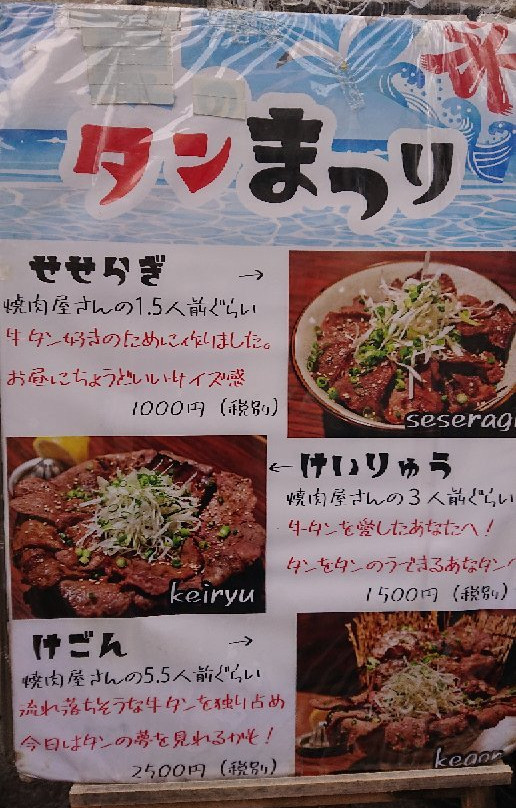 氷
タンまつり
せせらぎ →
焼肉屋さんの1.5人前ぐらい
牛タン好きのために作りました。
お昼にちょうどいいサイズ感
1000円（税別）
seseragi
← けいりゅう
焼肉屋さんの3人前ぐらい
牛タンを愛したあなたへ！
タンをタンのうできるあなタンへ
1500円（税別）
keiryu
けごん →
焼肉屋さんの5.5人前ぐらい
流れ落ちそうな牛タンを独り占め
今日はタンの夢を見れるかも！
2500円（税別）
kegon